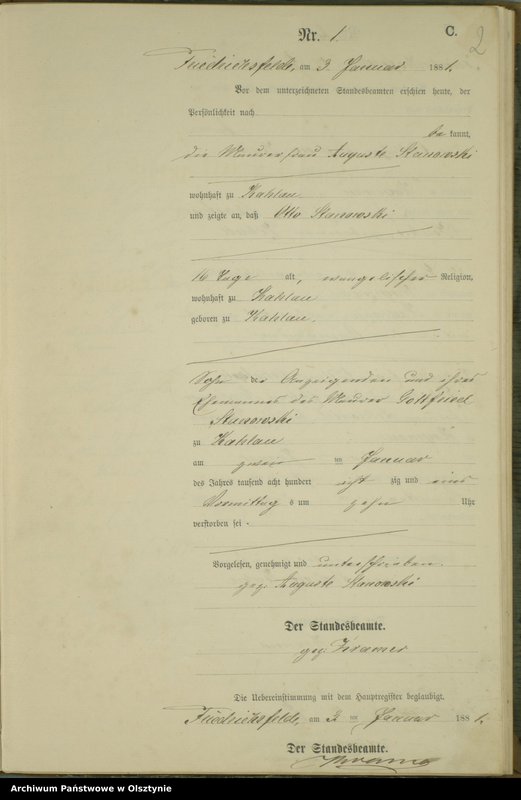 Nr. 1.
C.
2
Friedrichsfelde, am 3. Januar 1881.
Vor dem unterzeichneten Standesbeamten erschien heute, der
Persönlichkeit nach
be kannt,
die Maurerfrau Auguste Stanowski
wohnhaft zu Kahlau
und zeigte an, daß Otto Stanowski
16 Tage alt, evangelischer Religion,
wohnhaft zu Kahlau
geboren zu Kahlau,
Sohn der Anzeigenden und ihres
Ehemannes des Maurer Gottfried
Stanowski
zu Kahlau
am zwei ten Januar
des Jahres tausend acht hundert acht zig und eins
Vormittag s um zehn Uhr
verstorben sei.
Vorgelesen, genehmigt und unterschrieben.
gez. Auguste Stanowski
Der Standesbeamte.
gez. Kramer
Die Uebereinstimmung mit dem Hauptregister beglaubigt.
Friedrichsfelde, am 3. ten Januar 1881.
Der Standesbeamte.
Kramer
Archiwum Państwowe w Olsztynie